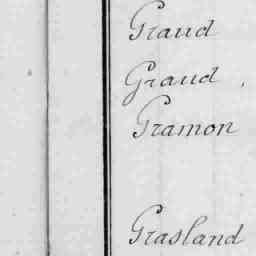 Graud
Graud,
Gramon
Grasland